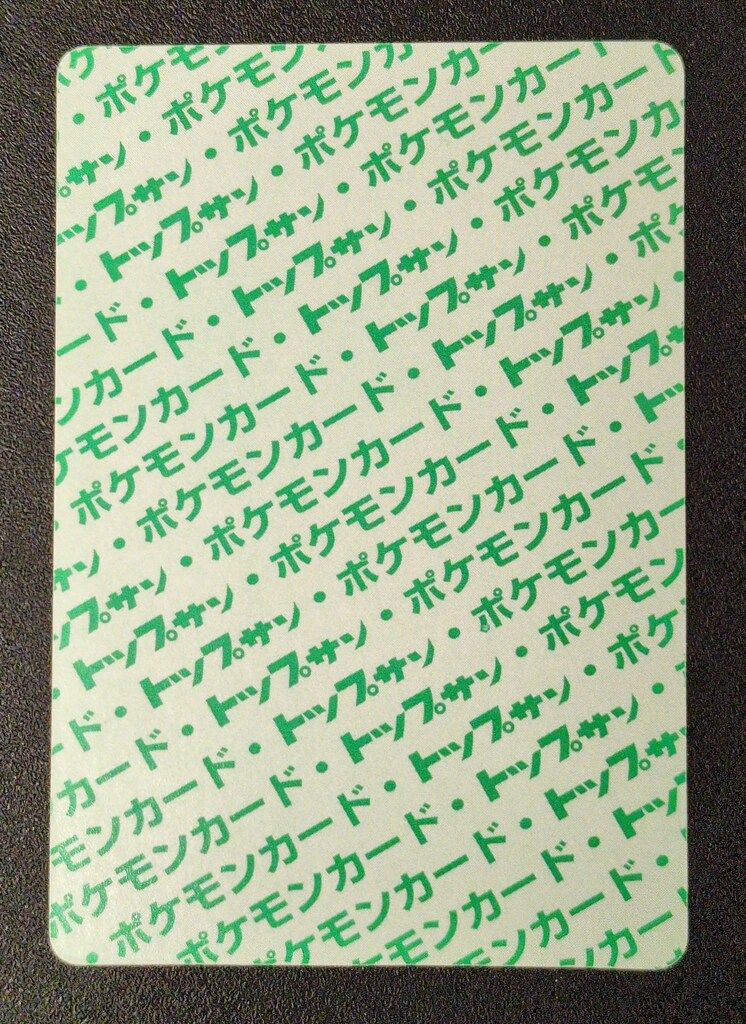 ・ポケモンカ
プサン・ポケモンカ
トップサン・ポケモンカー
・トップサン・ポケモンカード
ード・トップサン・ポケモンカード
ンカード・トップサン・ポケモンカー
ケモンカード・トップサン・ポケモンカ
・ポケモンカード・トップサン・ポケモ
サン・ポケモンカード・トップサン・ポケ
ップサン・ポケモンカード・トップサン・
・トップサン・ポケモンカード・トップ
ード・トップサン・ポケモンカード・トッ
カード・トップサン・ポケモンカード・
モンカード・トップサン・ポケモンカー
ポケモンカード・トップサン・ポケモン
・ポケモンカード・トップサン・ポケ
ポケモンカード・トップサン・
ケモンカード・トップサ
モンカード・トップ
ンカード・
カー